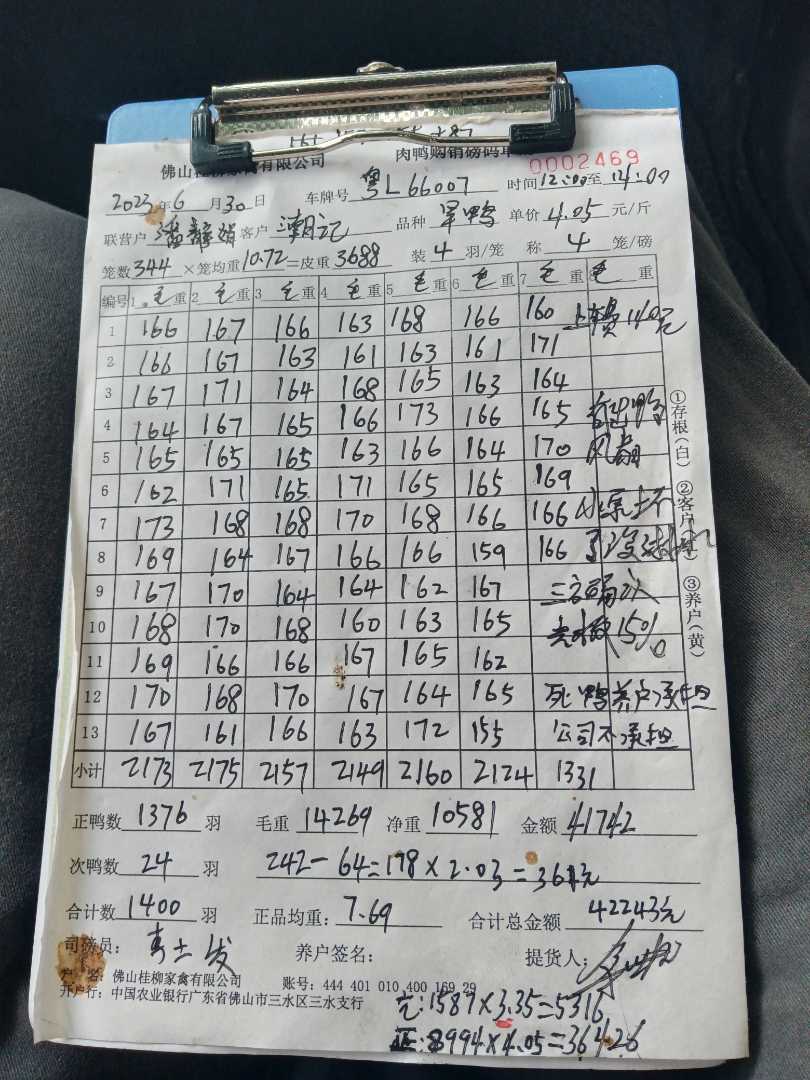 佛山桂柳家禽有限公司 肉鸭购销磅码单 0002469
2023年6月30日 车牌号 粤L66007 时间12:00至14:00
联营户 潘静娟 客户 潮记 品种 旱鸭 单价4.05元/斤
笼数344×笼均重10.72=皮重3688 装4羽/笼 称4笼/磅
编号 1 毛重 2 毛重 3 毛重 4 毛重 5 毛重 6 毛重 7 毛重 毛重
1 166 167 166 163 168 166 160 上车费140元
2 166 167 163 161 163 161 171
3 167 171 164 168 165 163 164
4 164 167 165 166 173 166 165
5 165 165 165 163 166 164 170 风扇
6 162 171 165 171 165 165 169
7 173 168 168 170 168 166 166
8 169 164 167 166 166 159 166
9 167 170 164 164 162 167 三方确认
10 168 170 168 160 163 165 15%
11 169 166 166 167 165 162
12 170 168 170 167 164 165 死鸭养户承担
13 167 161 166 163 172 155 公司不承担
小计 2173 2175 2157 2149 2160 2124 1331
①存根(白) ②客户 ③养户(黄)
正鸭数1376羽 毛重14269 净重10581 金额41742
次鸭数24羽 242-64=178×2.03=361元
合计数1400羽 正品均重:7.69 合计总金额42243元
司磅员: 养户签名: 提货人:
户 名: 佛山桂柳家禽有限公司 账号: 444 401 010 400 169 29
开户行: 中国农业银行广东省佛山市三水区三水支行
:1587×3.35=5316
正:8994×4.05=36426